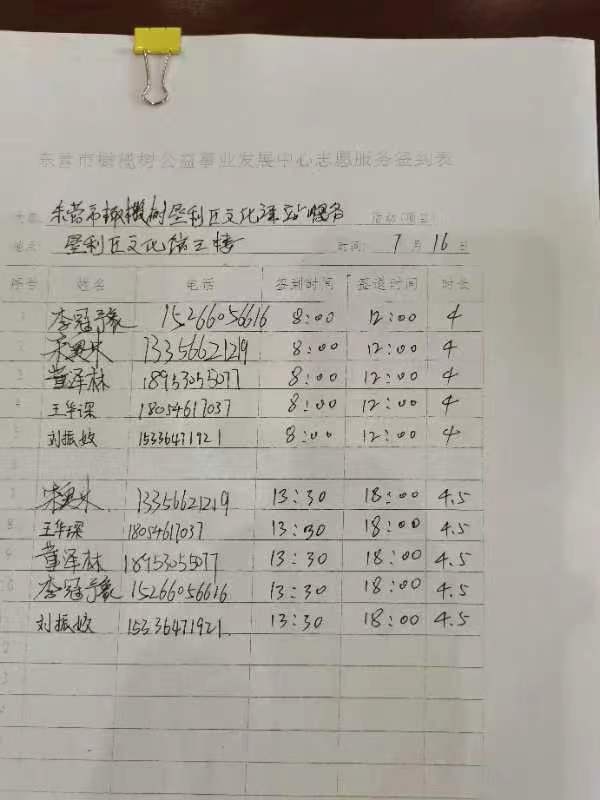 东营市橄榄树公益事业发展中心志愿服务签到表
东营市橄榄树垦利区文化 服务 活动(项目)
地点: 垦利区文化馆三楼 时间: 7月16日
序号 姓名 电话 签到时间 签退时间 时长
1 李冠豫 15266056616 8:00 12:00 4
2 宋 13356621219 8:00 12:00 4
3 董泽林 18953055077 8:00 12:00 4
4 王华深 18054617037 8:00 12:00 4
5 刘振姣 15336471921 8:00 12:00 4
6
7 宋 13356621219 13:30 18:00 4.5
8 王华深 18054617037 13:30 18:00 4.5
9 董泽林 18953055077 13:30 18:00 4.5
0 李冠豫 15266056616 13:30 18:00 4.5
1 刘振姣 15336471921 13:30 18:00 4.5
2
3
4
5